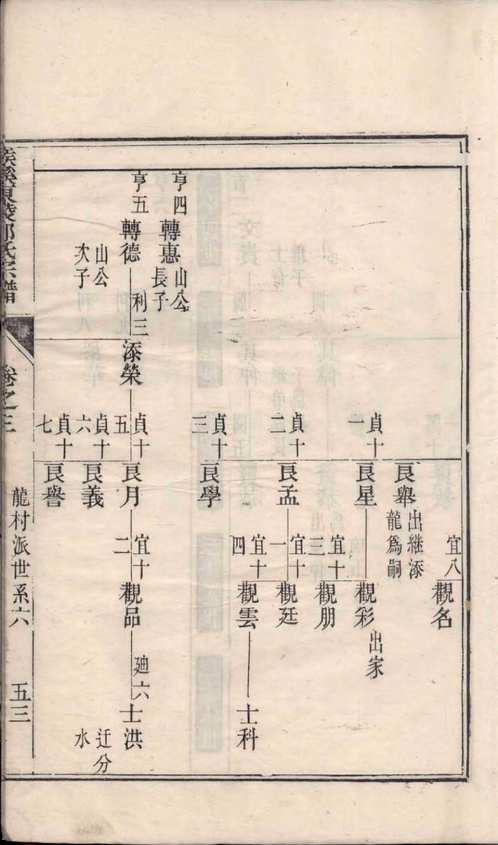 宜八
觀名
良舉
出継添
龍爲嗣
貞十一
良星
觀彩
出家
宜十三
觀朋
貞十二
良孟
宜十一
觀廷
宜十四
觀雲
士科
貞十三
良學
亨四
轉惠
山公
長子
亨五
轉德
山公
次子
利三
添榮
貞十五
良月
宜十二
觀品
廸六
士洪
迁分
水
貞十六
良義
貞十七
良譽
氏宗譜
卷之三
龍村派世系六
五三